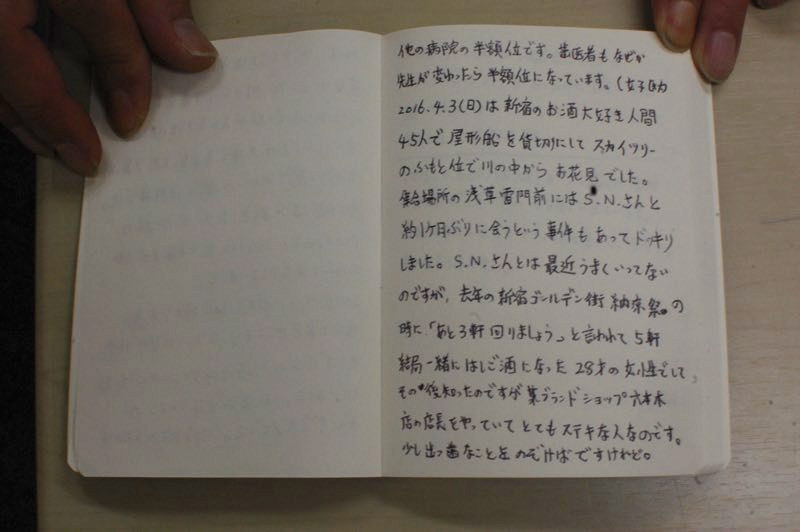 他の病院の半額位です。歯医者もなぜか
先生が変わったら半額位になっています。(女子医大)
2016.4.3(日)は新宿のお酒大好き人間
45人で屋形船を貸切りにしてスカイツリー
のふもと位で川の中からお花見でした。
集合場所の浅草雷門前にはS.N.さんと
約1ケ月ぶりに会うという事件もあってドッキリ
しました。S.N.さんとは最近うまくいってない
のですが、去年の新宿ゴールデン街納涼祭。の
時に「あと3軒回りましょう。」と言われて5軒
結局一緒にはしご酒になった28才の女性でして、
その後知ったのですが某ブランドショップ六本木
店の店長をやっていてとてもステキな人なのです。
少し出っ歯なことをのぞけばですけれど。